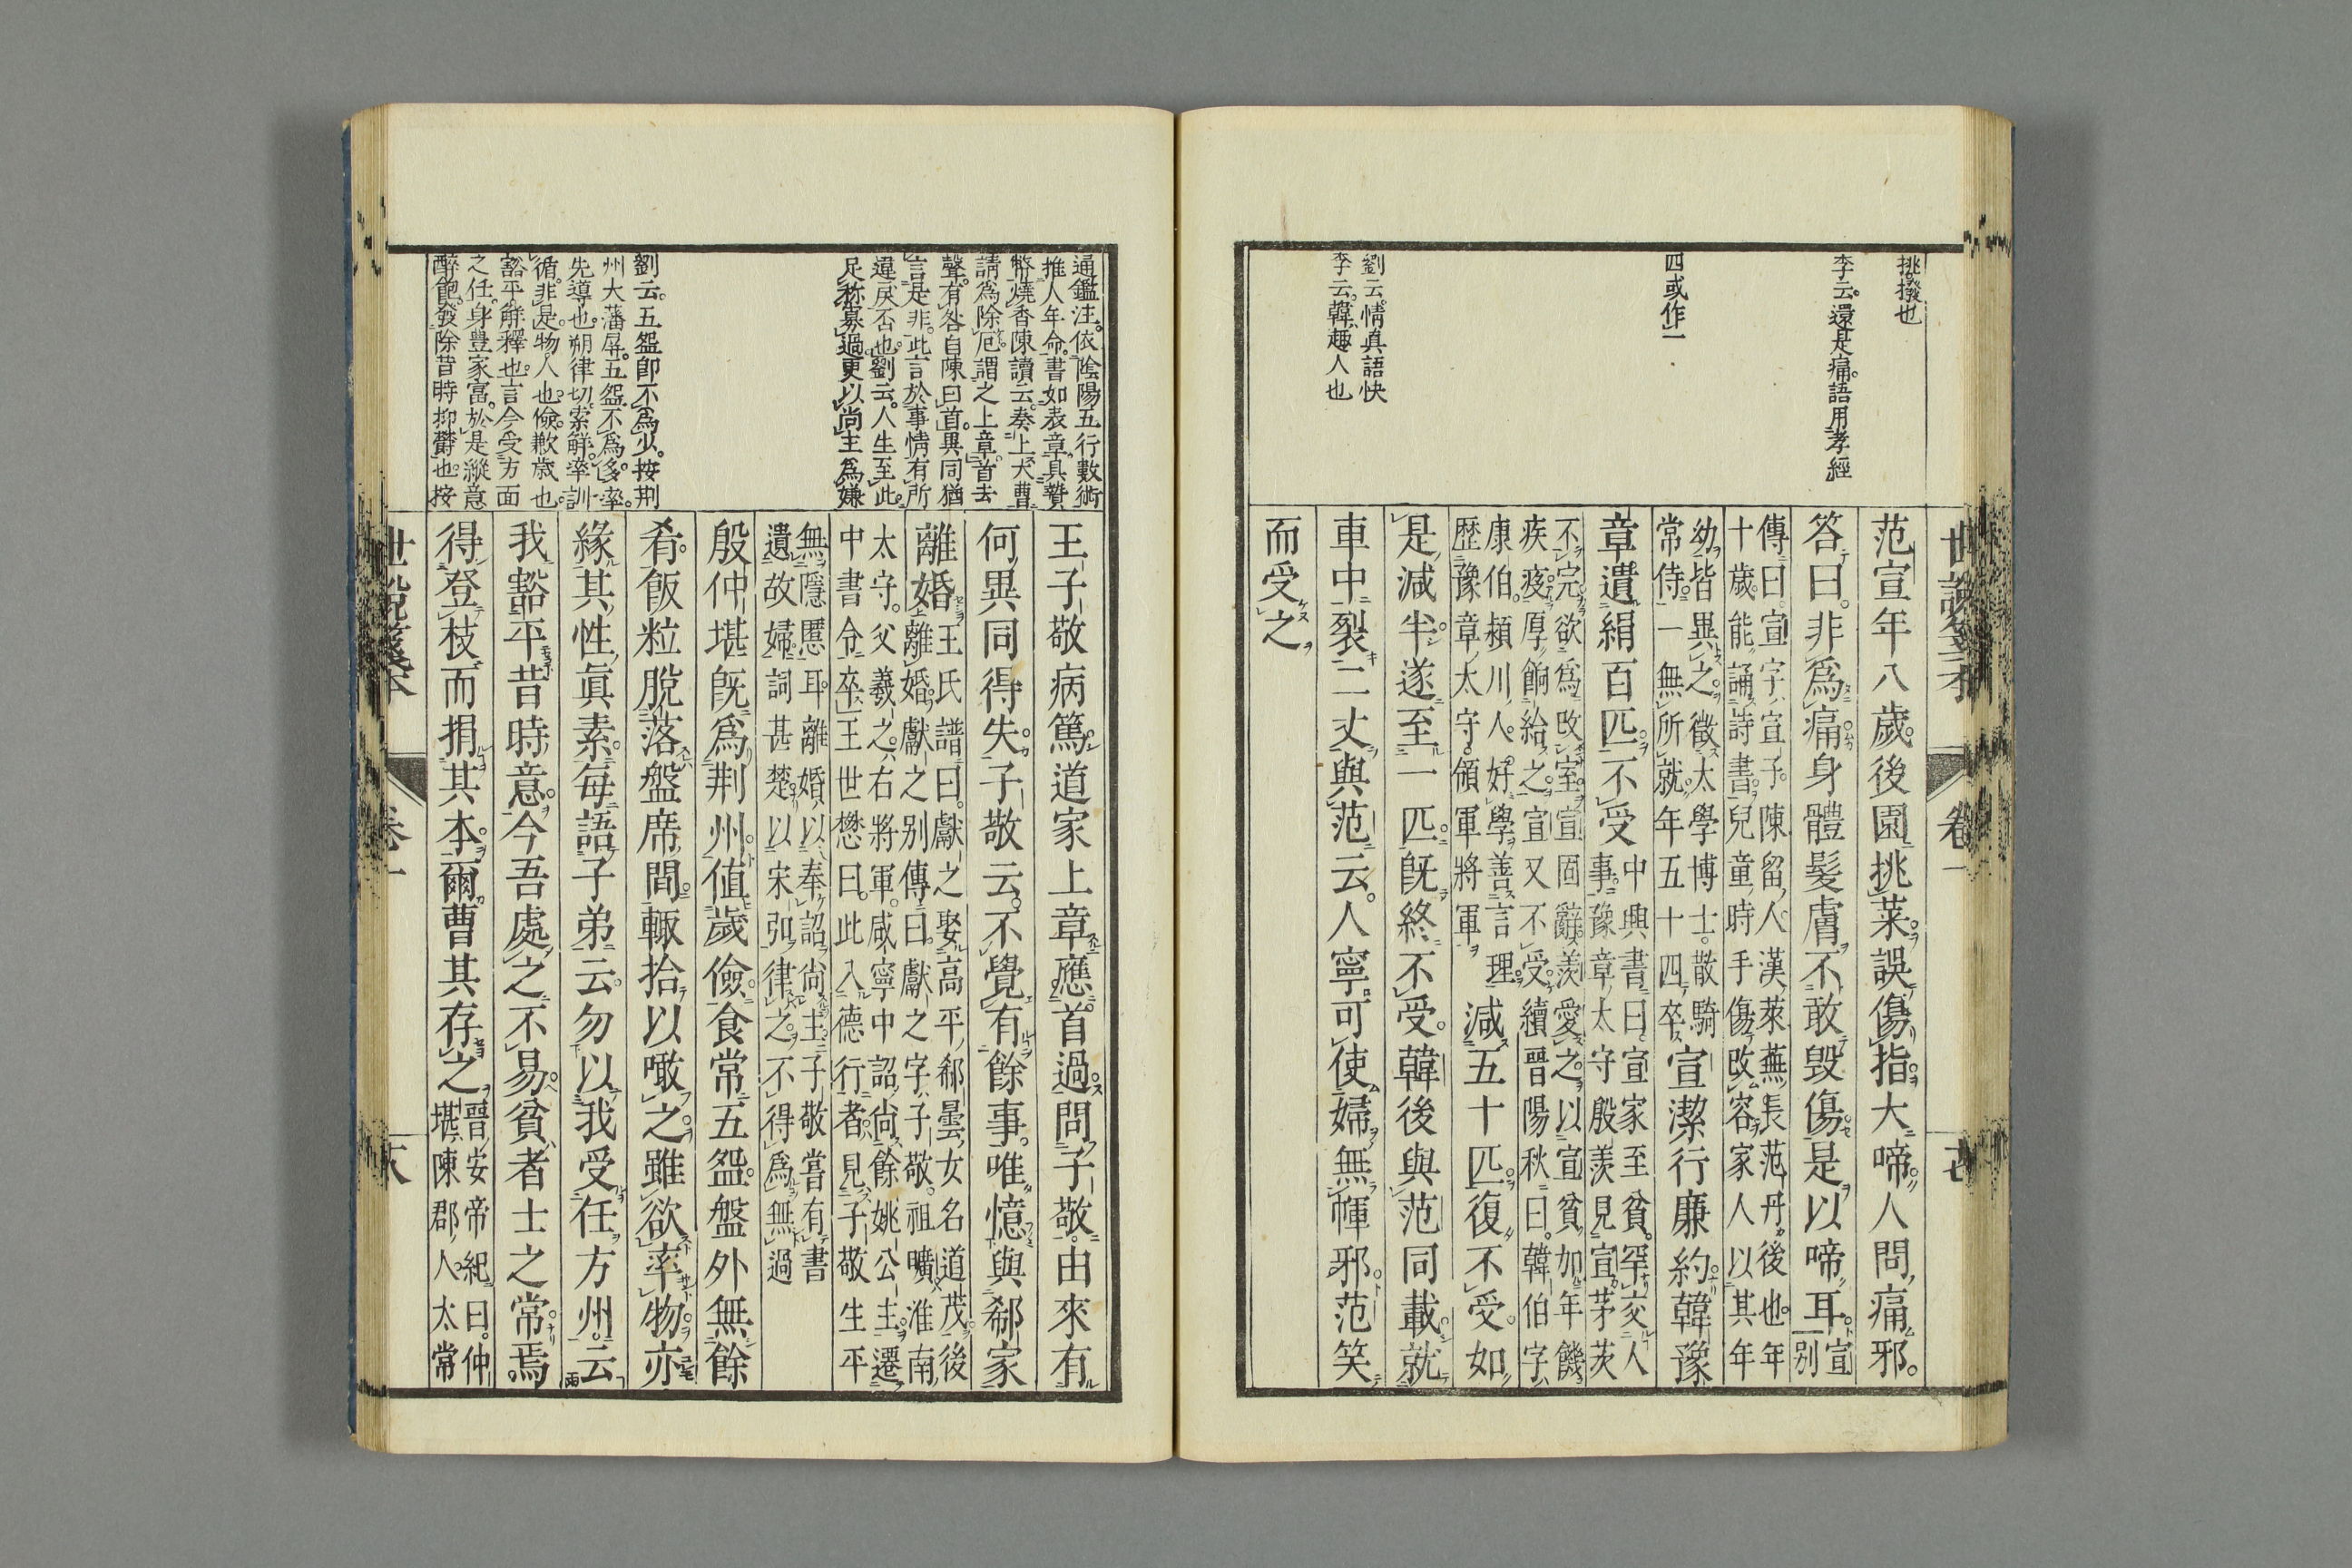 挑撥也
李云還是痛語用孝經
四或作一
劉云情真語快
李云韓趣人也
世說箋本
卷一
范宣年八歲後園挑菜誤傷指大啼人問痛邪
答曰非爲痛身體髮膚不敢毀傷是以啼耳
宣
別
傳曰宣字宣子陳留人漢萊蕪長范丹後也年
十歲能誦詩書兒童時手傷改容家人以其年
幼皆異之徵太學博士散騎
常侍一無所就年五十四卒
宣潔行廉約韓豫
章遺絹百匹不受
中興書曰宣家至貧罕交人
事豫章太守殷羨見宣茅茨
不完欲爲改室宣固辭羨愛之以宣貧加年饑
疾疫厚餉給之宣又不受續晉陽秋曰韓伯字
康伯潁川人好學善言理
歷豫章太守領軍將軍
減五十匹復不受如
是減半遂至一匹既終不受韓後與范同載就
車中裂二丈與范云人寧可使婦無褌邪范笑
而受之
通鑑注依陰陽五行數術
推人年命書如表章具贄
幣燒香陳讀云奏上天曹
請爲除厄謂之上章首去
聲有咎自陳曰首異同猶
言是非此言於事情有所
違戾否也劉云人生至此
足称寡過更以尚主爲嫌
劉云五盌即不爲少按荆
州大藩屏五盌不爲多率
先導也朔律切索解滓訓
循非是物人也儉歉歲也
豁平解釋也言今受方面
之任身豊家富於是縱意
醉飽發除昔時抑鬱也按
王子敬病篤道家上章應首過問子敬由來有
何異同得失子敬云不覺有餘事唯憶與郗家
離婚
王氏譜曰獻之娶高平郗曇女名道茂後
離婚獻之別傳曰獻之字子敬祖曠淮南
太守父羲之右將軍咸寧中詔尚餘姚公主遷
中書令卒王世懋曰此入德行者見子敬生平
無隱慝耳離婚以奉詔尚主子敬嘗有書
遺故婦詞甚楚以宋弘律之不得爲無過
殷仲堪既爲荆州値歲儉食常五盌盤外無餘
肴飯粒脫落盤席間輒拾以噉之雖欲率物亦
緣其性眞素每語子弟云勿以我受任方州云
我豁平昔時意今吾處之不易貧者士之常焉
得登枝而捐其本爾曹其存之
晉安帝紀曰仲
堪陳郡人太常
世說箋本
卷一